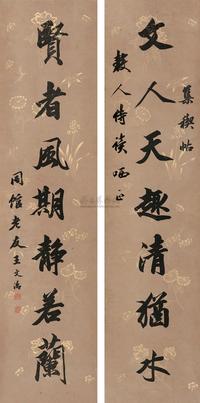 集禊帖
文人天趣清猶水
人侍读哂正
賢者風期靜若蘭
同館老友王文濤